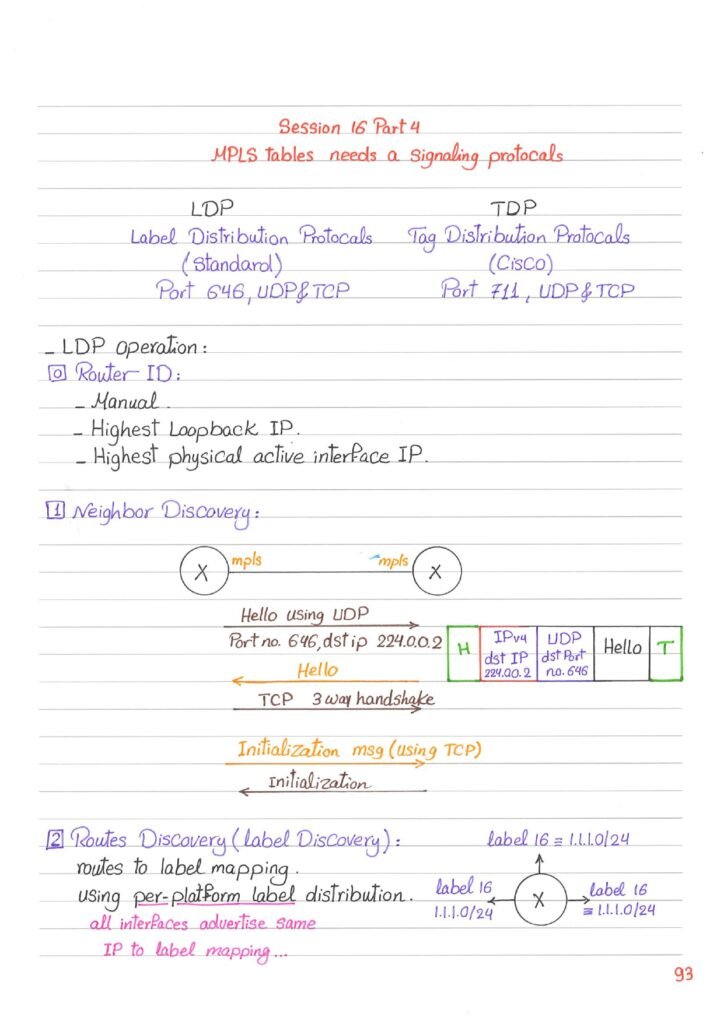 Session 16 Part 4
MPLS tables needs a signaling protocals
LDP
Label Distribution Protocals
(Standard)
Port 646, UDP & TCP
TDP
Tag Distribution Protocals
(Cisco)
Port 711, UDP & TCP
_ LDP operation:
0 Router ID:
_ Manual.
_ Highest Loopback IP.
_ Highest physical active interface IP.
1 Neighbor Discovery:
X mpls mpls X
Hello using UDP
Port no. 646, dst ip 224.0.0.2
Hello
TCP 3 way handshake
Initialization msg (using TCP)
Initialization
H
IPv4
dst IP
224.00.2
UDP
dst Port
no. 646
Hello
T
2 Routes Discovery (label Discovery):
routes to label mapping.
using per-platform label distribution.
all interfaces advertise same
IP to label mapping...
label 16 ≡ 1.1.1.0/24
label 16
1.1.1.0/24
X
label 16
≡ 1.1.1.0/24
93